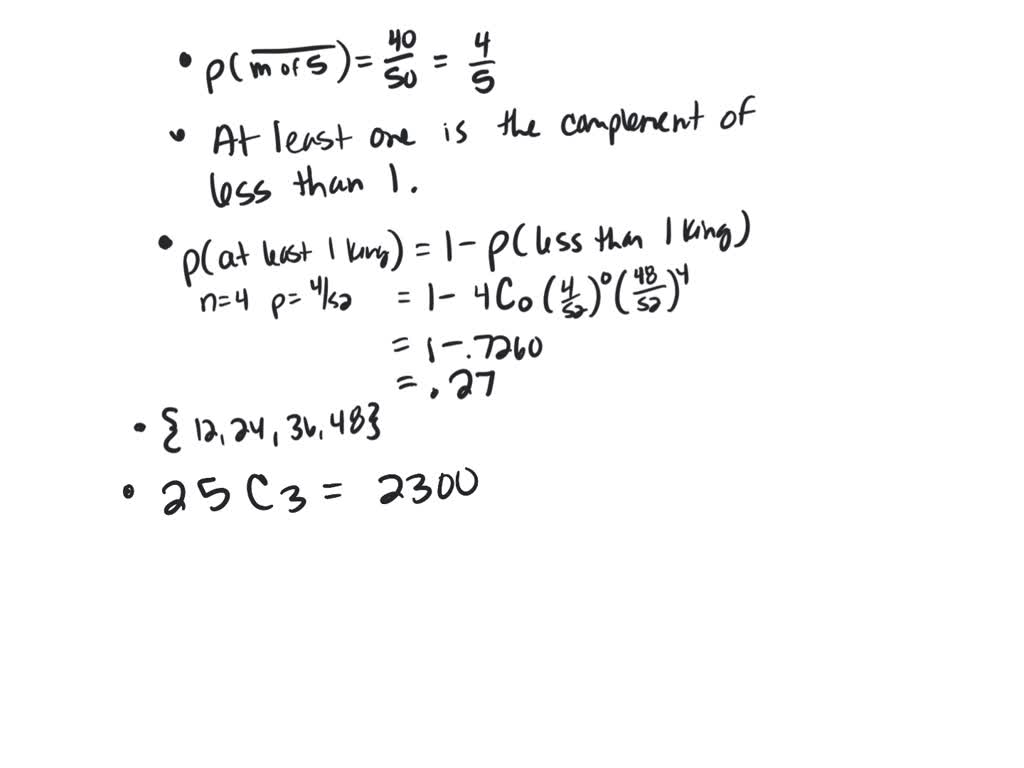 • p(m̅ ̅o̅f̅ ̅5̅) = 40/50 = 4/5
• At least one is the complement of
less than 1.
• p(at least 1 king) = 1 - p(less than 1 king)
n=4 p=4/52 = 1 - 4C₀ (4/52)⁰ (48/52)⁴
= 1 - .7260
= .27
• {12, 24, 36, 48}
• 25 C₃ = 2300